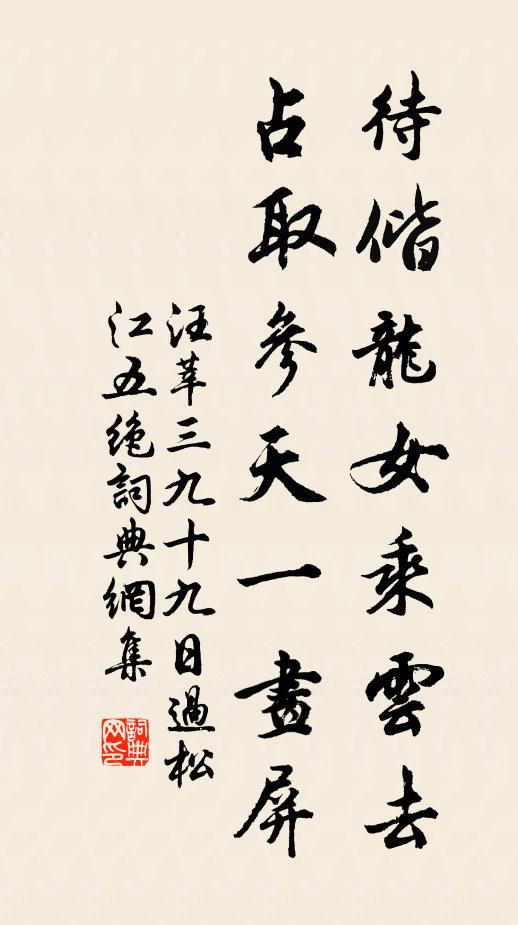 待偕龍女乘雲去
占取參天一畫屏
汪莘三九十九日過松
江五絶詞典網集
詞典
网印